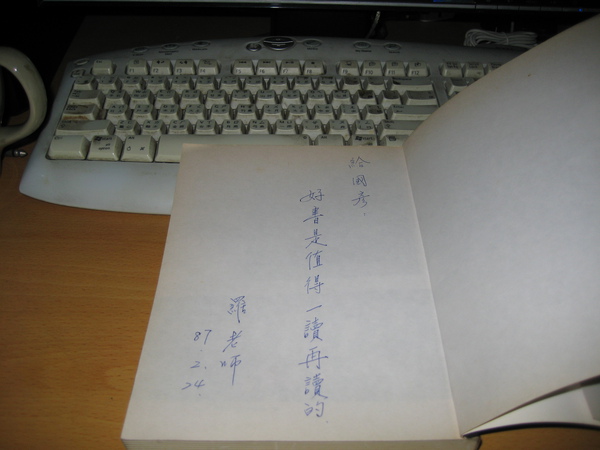 給國彥：
好書是值得一讀再讀的
羅老師
87.2.24.